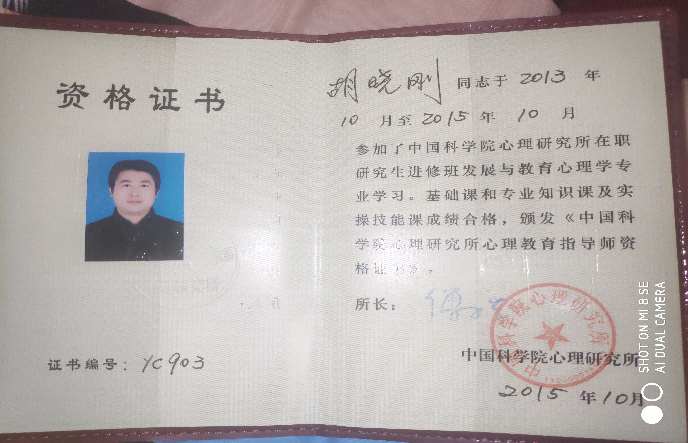 资格证书
证书编号：YC903
胡晓刚 同志于 2013 年
10 月至 2015 年 10 月
参加了中国科学院心理研究所在职
研究生进修班发展与教育心理学专
业学习。基础课和专业知识课及实
操技能课成绩合格，颁发《中国科
学院心理研究所心理教育指导师资
格证书》。
所长：
中国科学院心理研究所
中国科学院心理研究所
2015 年 10 月
SHOT ON MI 8 SE
AI DUAL CAMERA